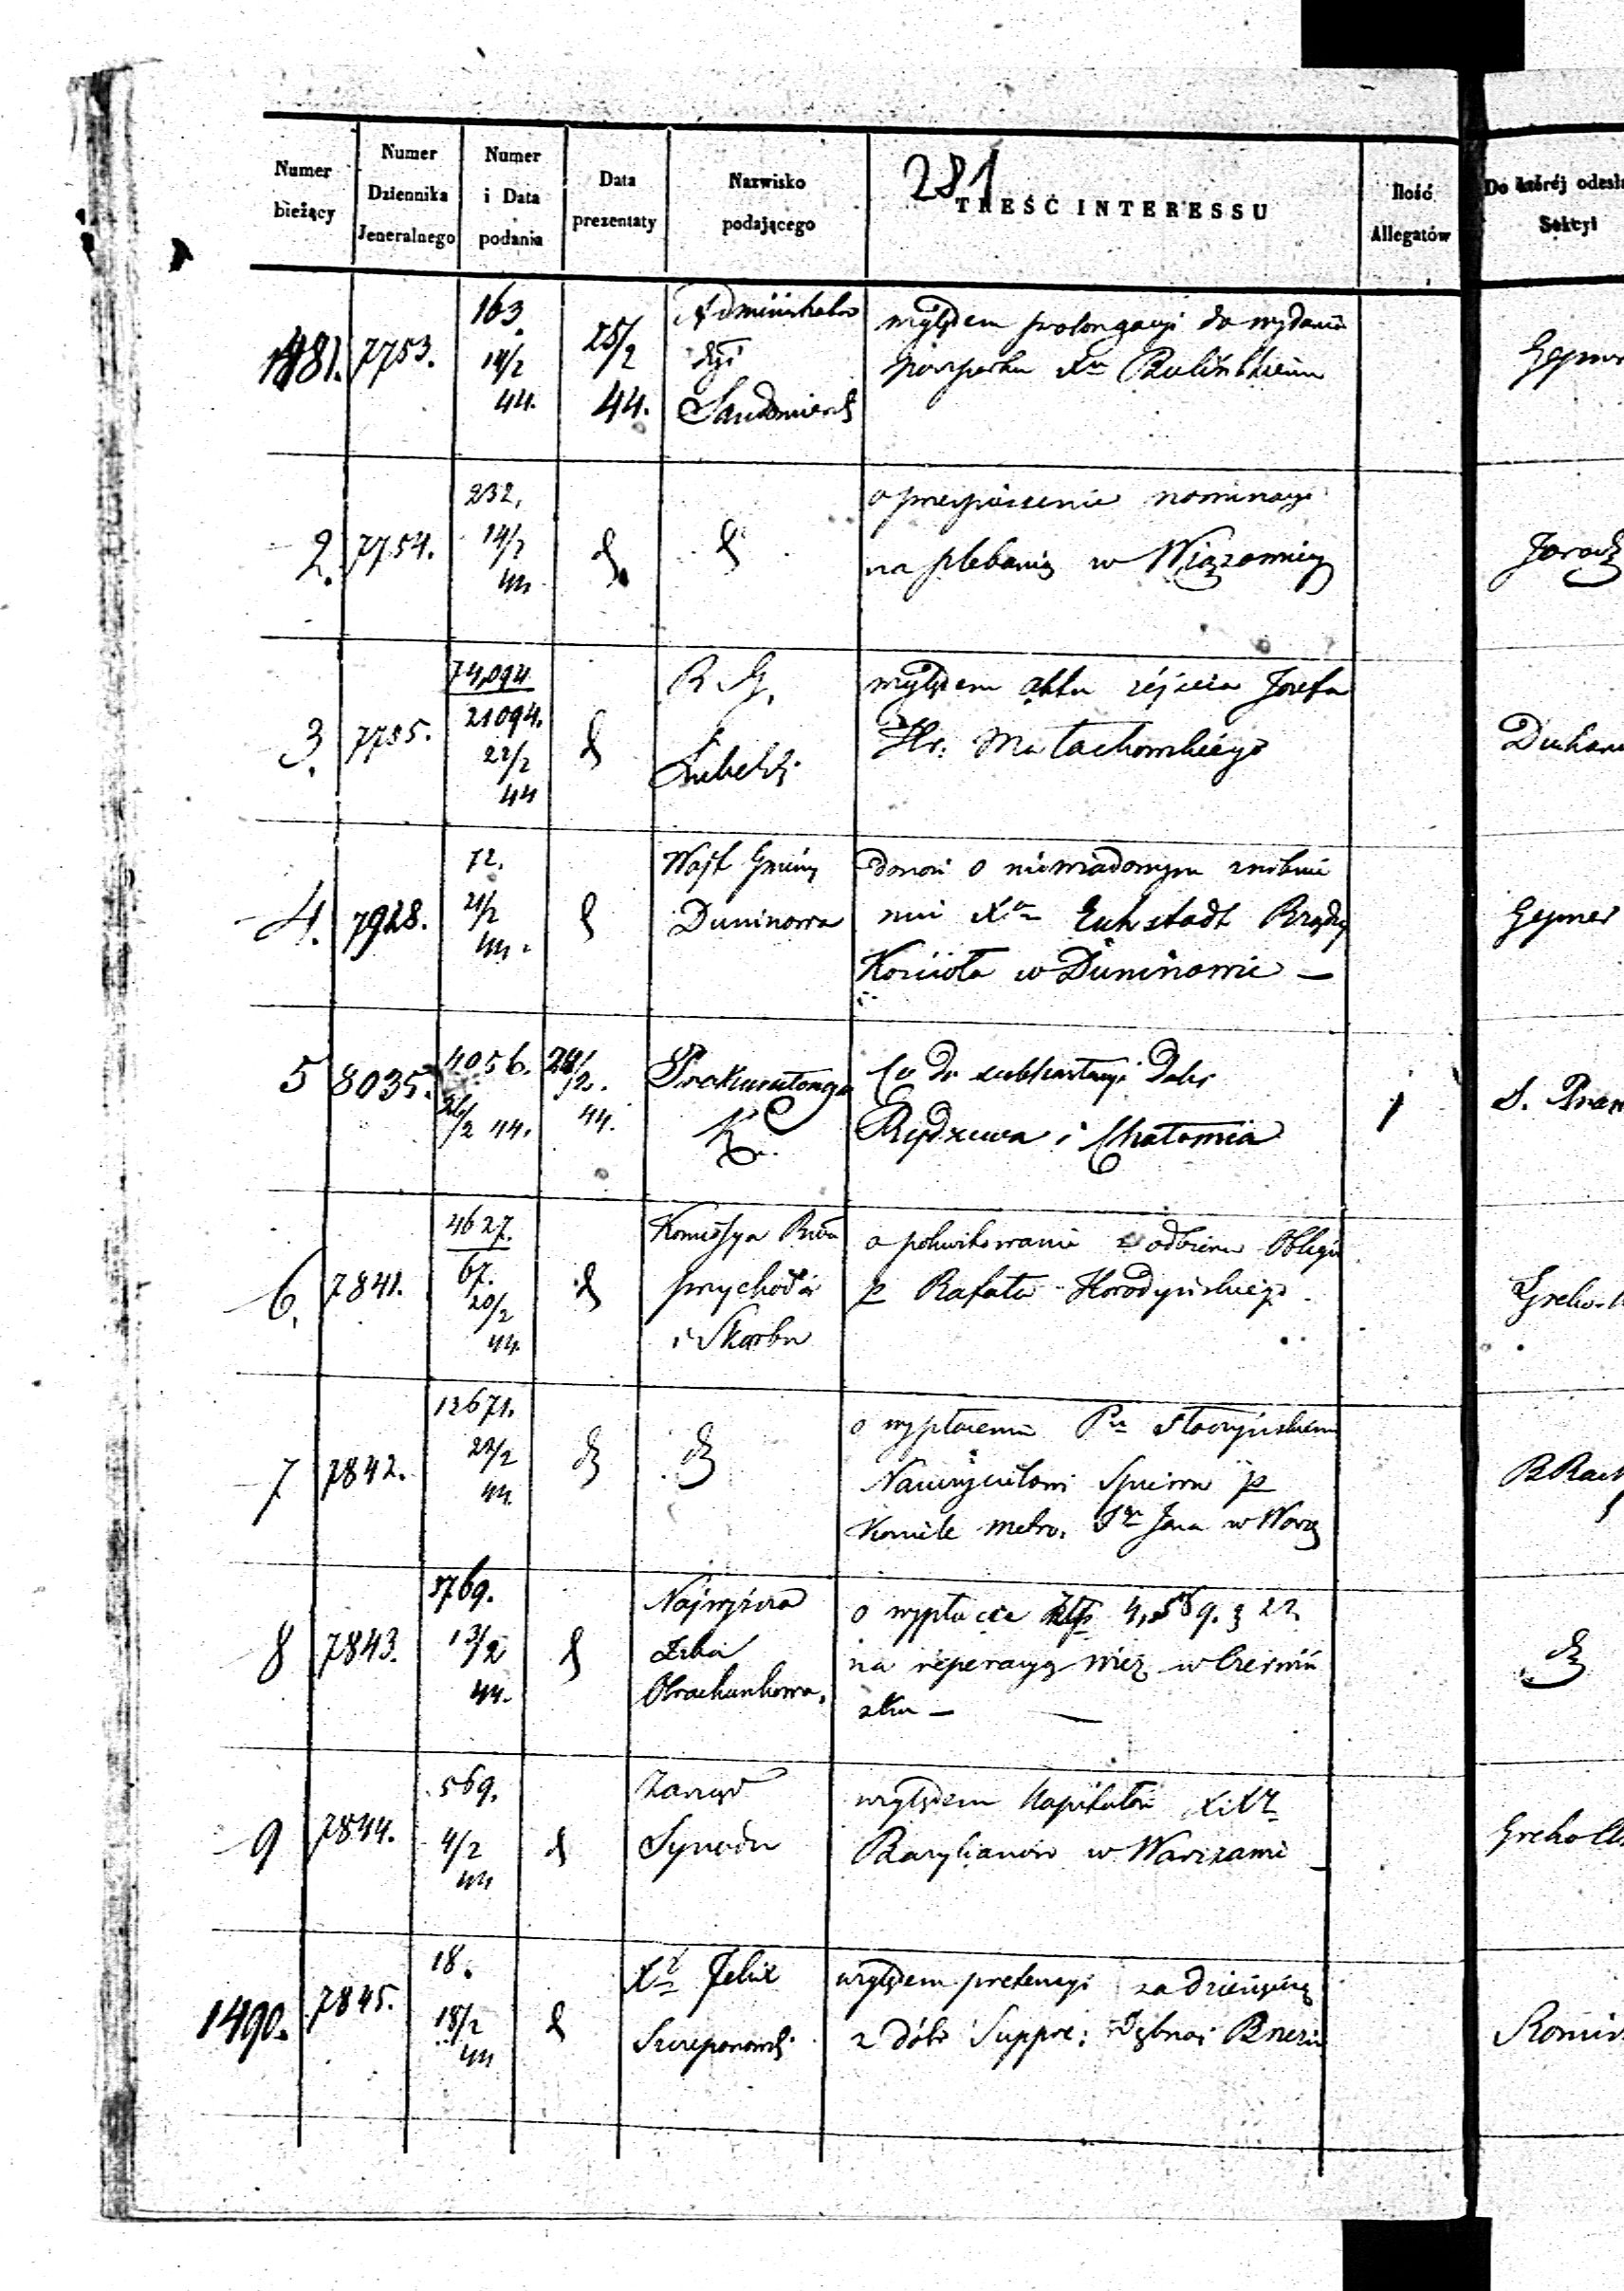 281
Numer bieżący
Numer Dziennika Jeneralnego
Numer i Data podania
Data prezentaty
Nazwisko podającego
TREŚĆ INTERESSU
Ilość Allegatów
Do któréj odesła
Sekcyi
1481. 7753. 163. 14/2 44. 25/2 44. Administrator
Dyi
Sandomiersk
względem prolongacyi do wydania
paszportu Xu Bulińskiemu
2. 7754. 232. 14/2 44
o przyspieszenie nominacyi
na plebanię w Wiązownicy
3. 7755. 74,094 21094. 22/2 44 R. G.
Lubelski
względem aktu zejścia Józefa
Hr. Małachowskiego
Duhan
4. 7928. 72. 21/2 44. Wójt Gminy
Duninowa
donosi o niewiadomym
Xa Eichstadt Rządcy
Kościoła w Duninowie —
5 8035. 4056. 21/2 44. 24/2. 44. Prokuratorya
K.
Co do subhastacyi Dóbr
Będzewa i Chatomia
1
6. 7841. 4627. 67. 20/2 44. Komissya Rzą
Przychodów
i Skarbu
o pokwitowanie z odbioru Obligu
p Rafała Horodyńskiego
7 7842. 12671. 22/2 44.
o wypłacenie Pu Stoczyńskiemu
Nauczycielowi Śpiewu p
Kościele metro. Sgo Jana w Warsz
8 7843. 3769. 13/2 44. Najwyższa
Izba
Obrachunkowa.
o wypłacie złp 4,569. g 22
na reperacyą wież w Czerwiń
sku —
9 7844. 569. 4/2 44 Zarząd
Synodu
względem Kapitałów XiXy
Bazylianów w Warszawie —
Grecho
1490. 7845. 18. 18/2 44 Xdz Felix
Szczepanowski
względem pretensyi za dziesięcinę
z dóbr Suppre: Dębnej Brzezia